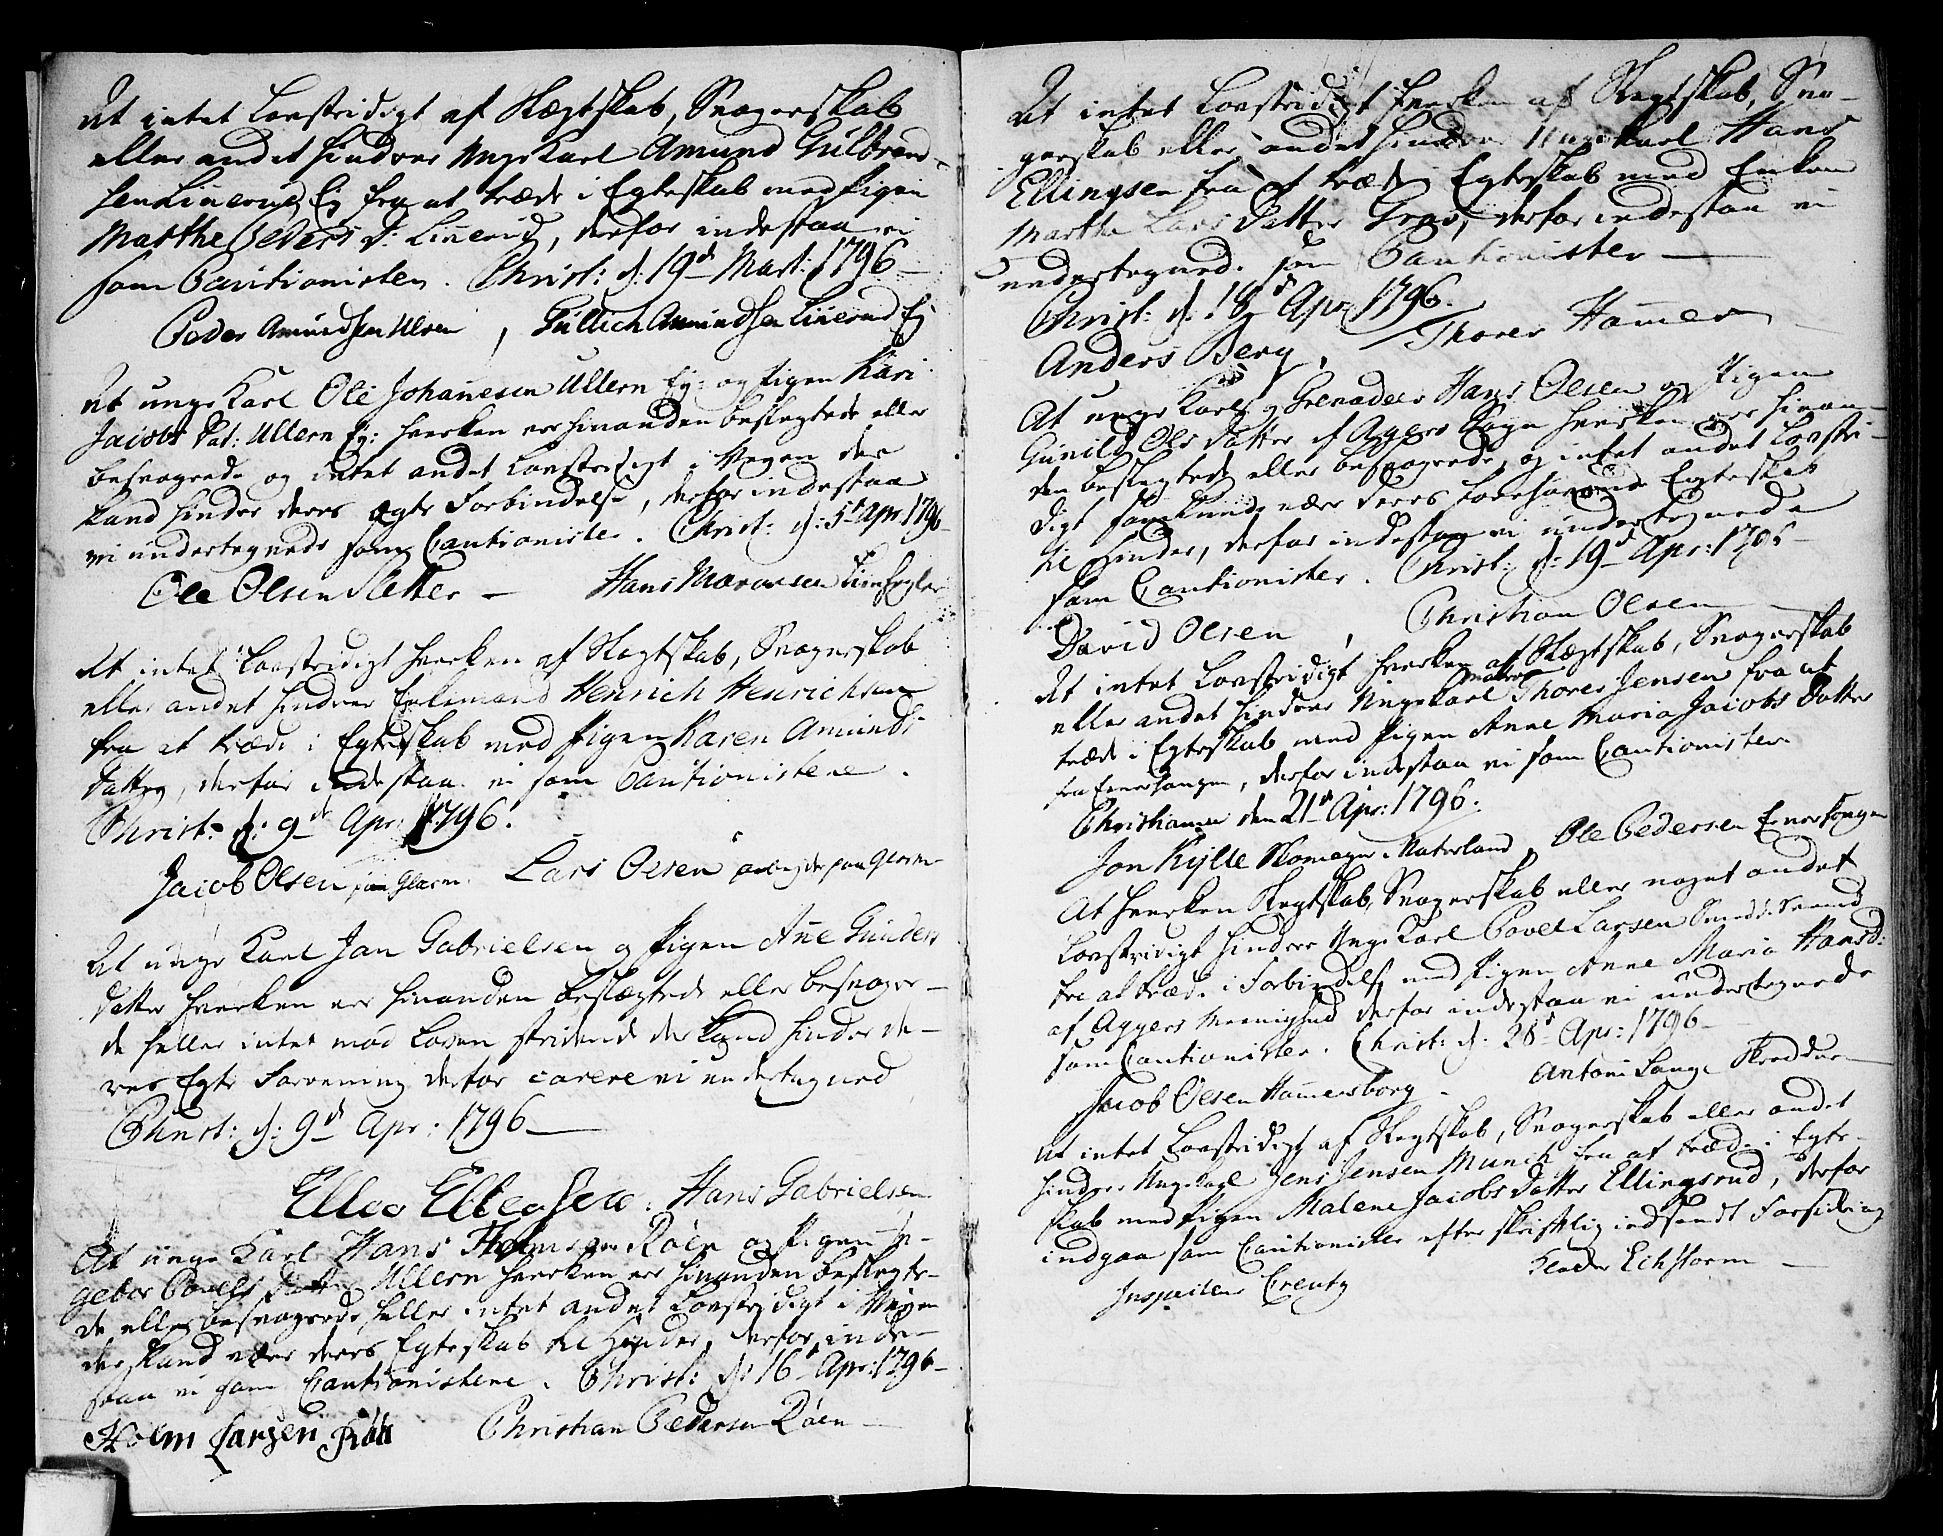 At intet Lovstridigt af Slægtskab, Svogerskab
eller andet hindrer Unge Karl Amund Gulbrand-
sen Linerud Ej fra at træde i Egteskab med Pigen
Marthe Peders D: Linerud, derfor indestaa vi
som Cautionister. Christ: d: 19d Mart: 1796
Peder Amundsen Ulven, Gullich Amundsen Linerud Ej
At unge Karl Ole Johannesen Ullern Ej: og Pigen Kari
Jacobs Dat: Ullern Ej: hverken ere hinanden beslegtede eller
besvogrede og intet andet Lovstridigt i Veyen der
kand hindre deres egte Forbindelse, derfor indestaa
vi undertegnede som Cautionister. Christ: d: 5t Apr 1796
Ole Olsen Sletter - Hans
At intet Lovstridigt hverken af Slegtskab, Svogerskab
eller andet hindrer Enkemand Henrich Henrichsen
fra at træde i Egteskab med Pigen Karen Amunds
Datter, derfor indestaa vi som Cautionistere.
Christ: d: 9de Apr: 1796.
Jacob Olsen paa Glasm. Lars Olsen arbeyder paa Glasm-
At unge Karl Jan Gabrielsen og Pigen Anne Gunders
datter hverken ere hinanden beslægtede eller besvogre-
de heller intet mod Loven stridende der kand hindre de-
res Egte Forening derfor cavere vi undertegnede
Christ: d: 9d Apr: 1796
Elleo Elleosen. Hans Gabrielsen
At unge Karl Hans Holmsen Röen og Pigen In-
gebor Povels Datter Ullern hverken ere hinanden beslegte-
de eller besvogrede, heller intet andet Lovstridigt i Veyen
der kand være deres Egteskab til Hinder, derfor inde-
staa vi som Cautionistere. Christ: d: 16d Apr: 1796
Holm Larsen Röen Christian Pedersen Röen
At intet Lovstridigt hverken af Slegtskab, Svo-
gerskab eller andet hindrer Unge Karl Hans
Ellingsen fra at træde i Egteskab med Enken
Marthe Lars Datter Grav, derfor indestaa vi
undertegnede som Cautionister
Christ: d: 18d Apr 1796.
Anders Berg, Thorer Hammer
At unge Karl og Grenadeer Hans Olsen og Pigen
Gunild Ols Datter af Agers Sogn hverken ere hinan-
den beslegtede eller besvogrede, og intet andet Lovstri-
digt som kunde være deres forehavende Egteskab
til Hinder, derfor indestaa vi undertegnede
som Cautionister. Christ: d: 19d Apr: 1796
David Olsen, Christian Olsen
At intet Lovstridigt hverken af Slægtskab, Svogerskab
eller andet hindrer Unge Karl Thorer Jensen fra at
træde i Egteskab med Pigen Anne Maria Jacobs Datter
fra Enerhougen, derfor indestaa vi som Cautionister.
Christiania den 21d Apr: 1796.
Jon Kylle Skomager i Vaterland, Ole Pedersen Enerhougen
At hverken Slegtskab, Svogerskab eller noget andet
Lovstridigt hindrer Unge Karl Povel Larsen
fra at træde i Forbindelse med Pigen Anne Maria Hans D:
af Aggers Meenighed derfor indestaa vi undertegnede
som Cautionister. Christ: d. 28d Apr: 1796
Jacob Olsen Hammersborg. Antoni Lange Skredder
At intet Lovstridigt af Slegtskab, Svogerskab eller andet
hindrer Unge Karl Jens Jensen Munch fra at træde i Egte-
skab med Pigen Malene Jacobs Datter Ellingsrud, derfor
indgaa som Cautionister efter skriftlig indsendt Forsikring
Inspecteur Creutz Peder Eichstorm